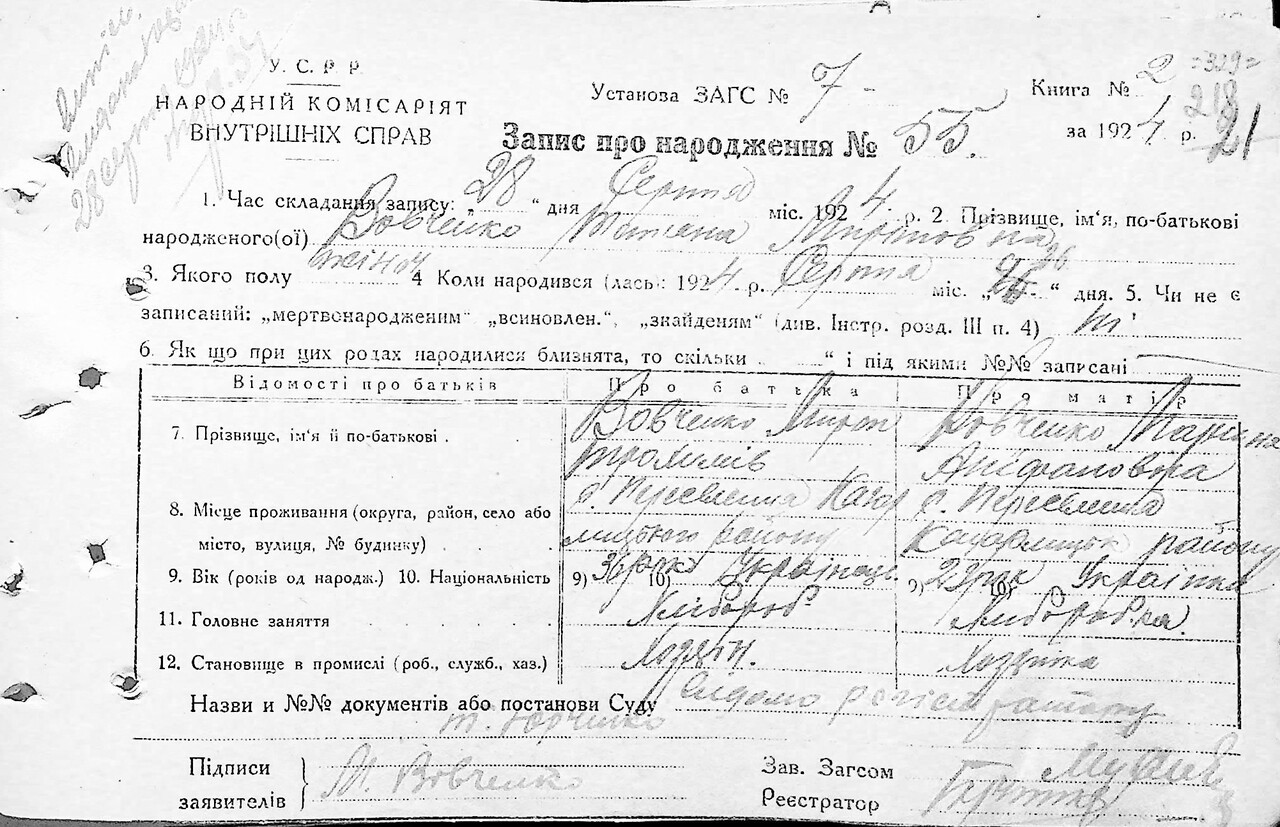 У. С. Р. Р
НАРОДНІЙ КОМІСАРІЯТ
ВНУТРІШНІХ СПРАВ
Установа ЗАГС № 7 -
Книга № 2
=329=
218
21
за 1924 р.
Запис про народження № 55.
1. Час складання запису: „28“ дня Серпня міс. 1924 р. 2. Прізвище, ім‘я, по-батькові
народженого(ої) Вовченко Татіана Мироновна
3. Якого полу жіноч 4 Коли народився (лась): 1924 р. Серпня міс. „26“ дня. 5. Чи не є
записаний: „мертвонародженим“ „всиновлен.“, „знайденям“ (див. Інстр. розд. III п. 4) ні
6. Як що при цих родах народилися близнята, то скільки “ і під якими №№ записані
Відомості про батьків Про батька Про матір
7. Прізвище, ім‘я й по-батькові . Вовченко Мирон Вовченко
Трохимів
8. Місце проживання (округа, район, село або
місто, вулиця, № будинку) . . . району Кагарлицьк району
9. Вік (років од народж.) 10. Національність 9) 36 рок 10) Українець 9) 22 рок 10) Українка
11. Головне заняття Хлібороб Хлібороб.ка.
12. Становище в промислі (роб., служб., хаз.) Хозяїн. Хозяйка
Назви и №№ документів або постанови Суду Відомо
т. Юрченко
Підписи
заявителів
М. Вовченко
Зав. Загсом
Реєстратор